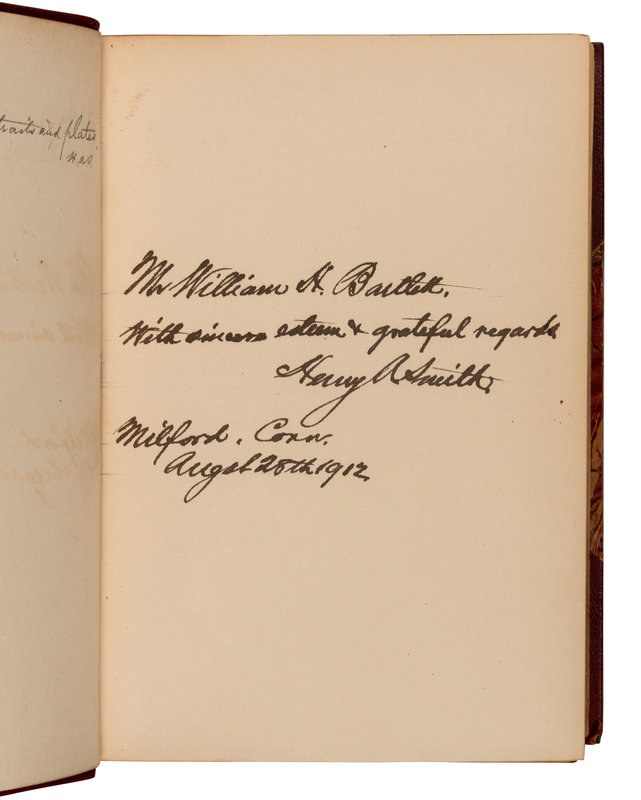 traits and plates
Mr William H. Bartlett.
With sincere esteem & grateful regards
Henry A Smith.
Milford. Conn.
Augst 28th 1912